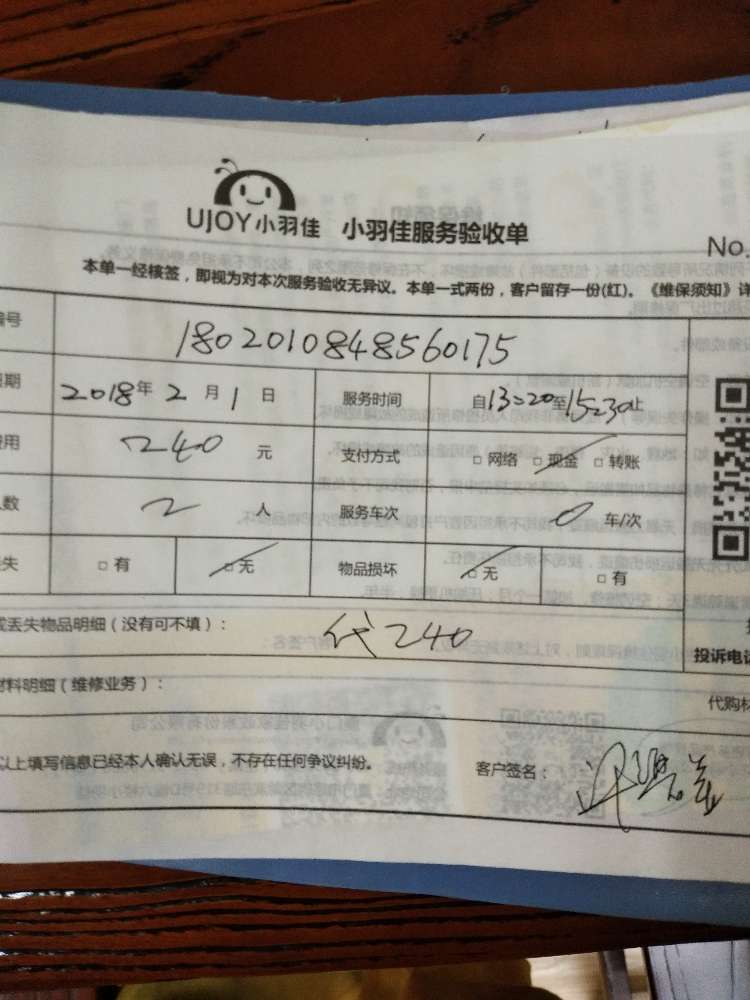 UJOY小羽佳 小羽佳服务验收单
No.
本单一经核签，即视为对本次服务验收无异议。本单一式两份，客户留存一份(红)。《维保须知》详
编号 1802010848560175
日期 2018年2月1日 服务时间 自13:20至15:30止
费用 240元 支付方式 □网络 □现金 □转账
人数 2人 服务车次 0车/次
丢失 □有 □无 物品损坏 □无 □有
或丢失物品明细（没有可不填）： 代240
投诉电话
材料明细（维修业务）：
代购材
以上填写信息已经本人确认无误，不存在任何争议纠纷。 客户签名：